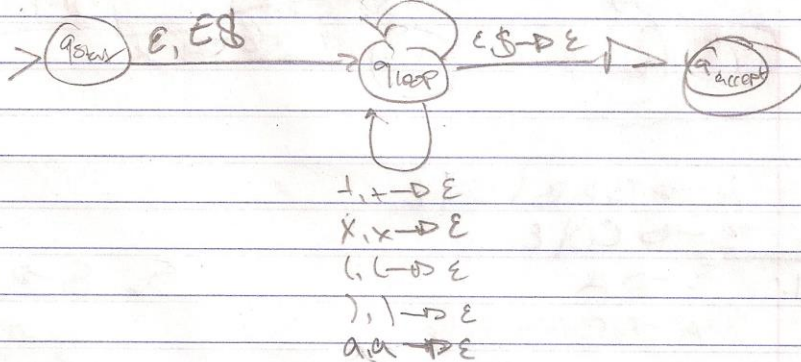 qstart ε, E$ qloop ε,$→ε qaccept
+,+→ε
x,x→ε
(,(→ε
),)→ε
a,a→ε